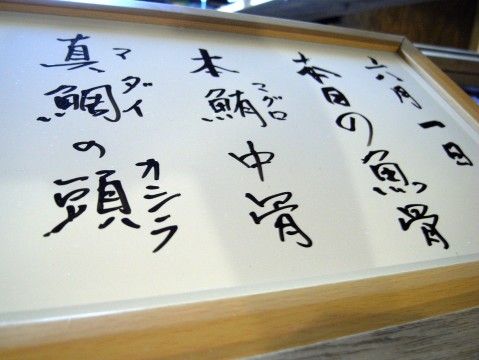 六月一日
本日の魚骨
本鮪マグロ中骨
真鯛マダイの頭カシラ